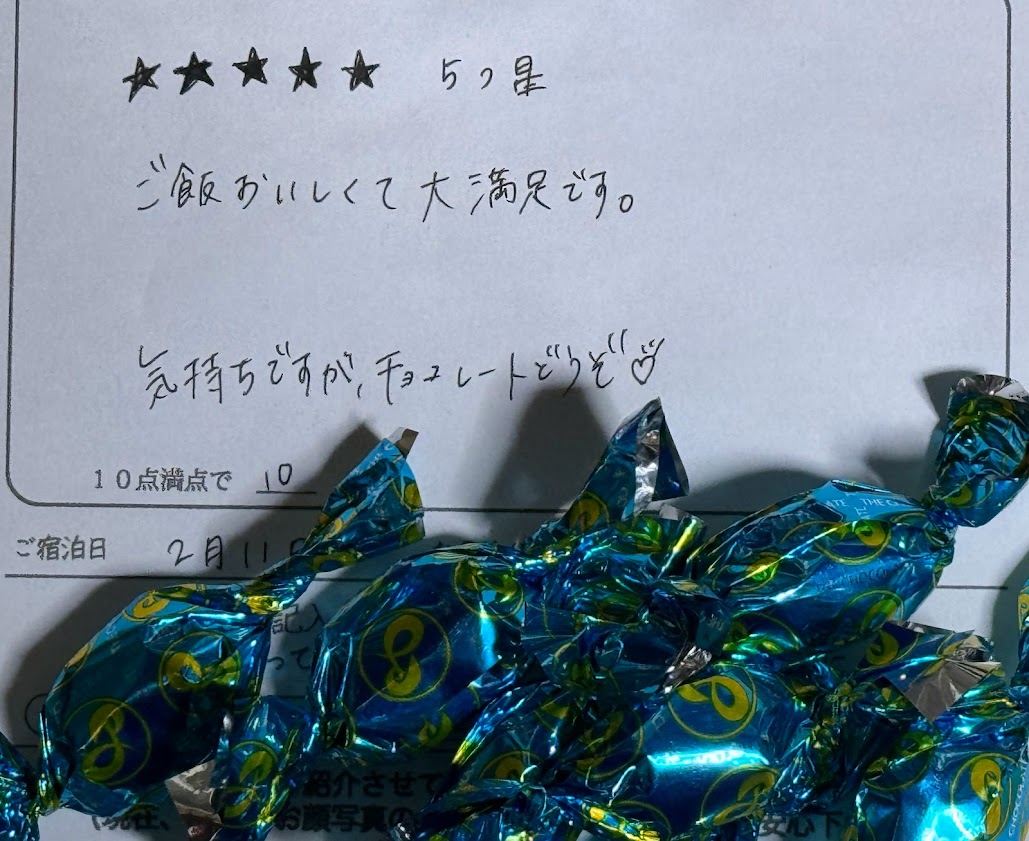 ★★★★★ 5つ星
ご飯おいしくて大満足です。
気持ちですが、チョコレートどうぞ♡
10点満点で 10
ご宿泊日 2月11日
記入
って
紹介させて
お顔写真の
安心下